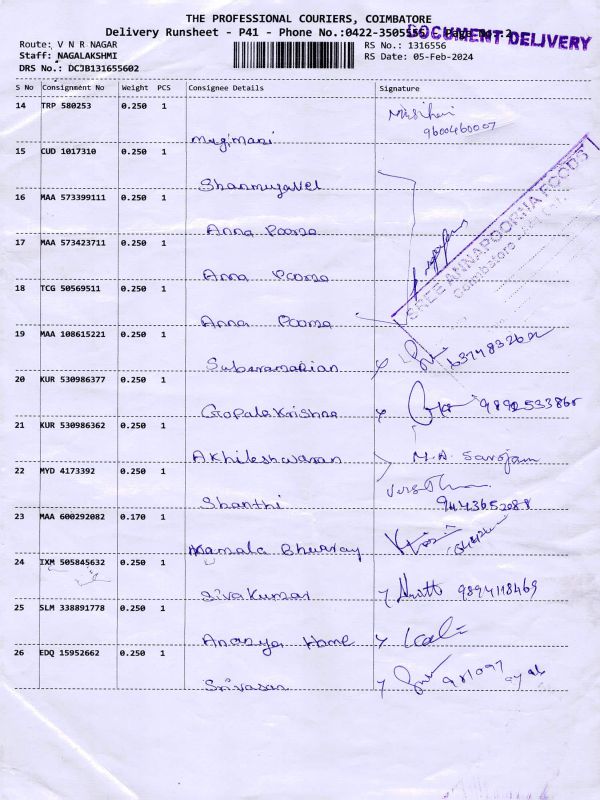 THE PROFESSIONAL COURIERS, COIMBATORE
Delivery Runsheet - P41 - Phone No.:0422-3505555
DOCUMENT DELIVERY
Route: V N R NAGAR
RS No.: 1316556
Staff: NAGALAKSHMI
RS Date: 05-Feb-2024
DRS No.: DCJB131655602
S No Consignment No Weight PCS Consignee Details Signature
14 TRP 580253 0.250 1
9600460007
15 CUD 1017310 0.250 1
Shanmugavel
16 MAA 573399111 0.250 1
Anna Poorna
17 MAA 573423711 0.250 1
Anna Poorna
SREE ANNAPOORNA FOODS
18 TCG 50569511 0.250 1
Anna Poorna
19 MAA 108615221 0.250 1
Subaramanian
20 KUR 530986377 0.250 1
Gopala Krishna
21 KUR 530986362 0.250 1
Akhileshwaran M.A. Sarojam
22 MYD 4173392 0.250 1
Shanthi 9443652088
23 MAA 600292082 0.170 1
Kamala
24 IXM 505845632 0.250 1
Siva Kumar 9894118469
25 SLM 338891778 0.250 1
Ananya Home
26 EDQ 15952662 0.250 1
Srivasan